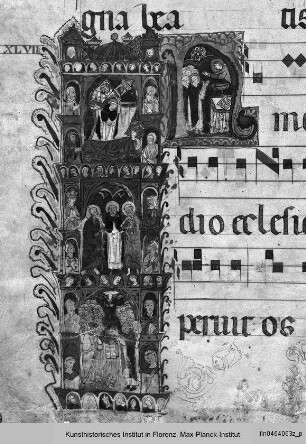 gna bea tis
XLVII
me
dio eclesie
peruit os
Kunsthistorisches Institut in Florenz, Max-Planck-Institut